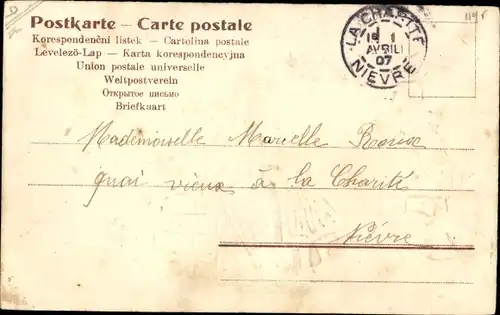 Postkarte – Carte postale
Korespondenční lístek – Cartolina postale
Levelező-Lap – Karta korespondencyjna
Union postale universelle
Weltpostverein
Открытое письмо
Briefkaart
LA CHARITÉ
1
AVRIL
07
NIEVRE
Mademoiselle Marcelle
quai vieux à la Charité
Nièvre